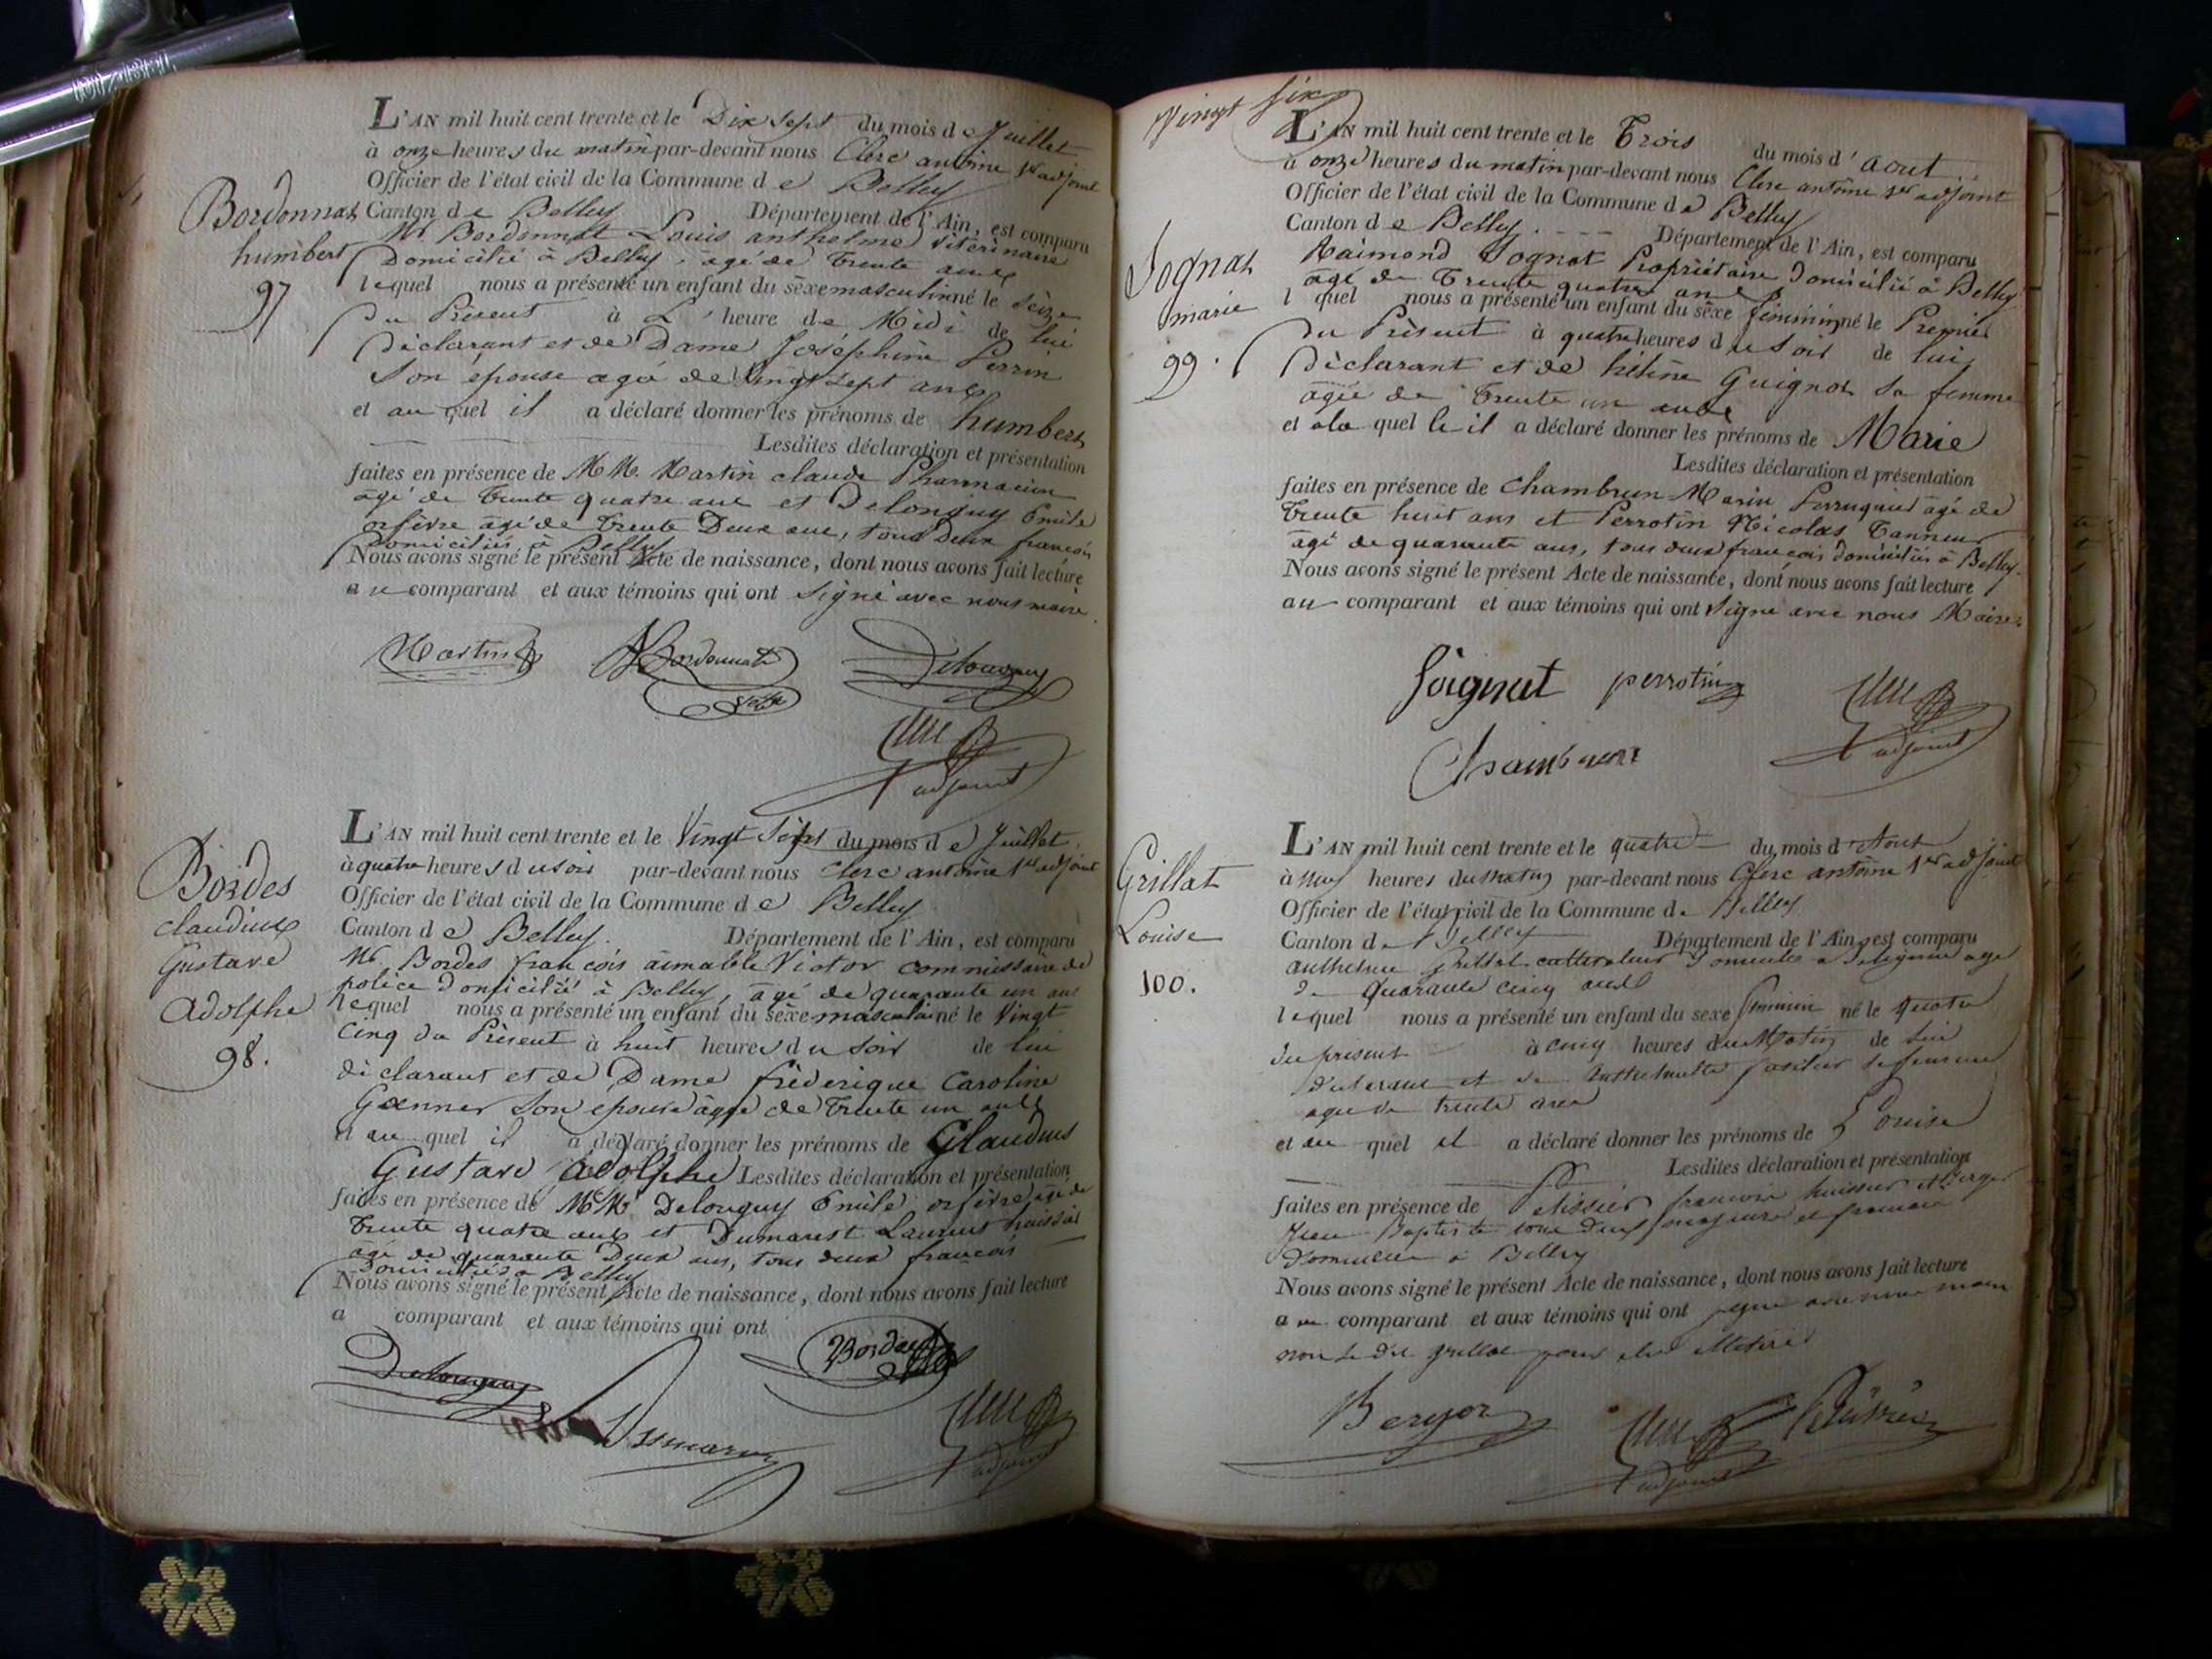 L'AN mil huit cent trente et le Dix Sept du mois de Juillet
à onze heures du matin par-devant nous Clerc antoine 1er adjoint
Officier de l'état civil de la Commune de Belley
Canton de Belley Département de l'Ain, est comparu
Mr. Bordonnat Louis anthelme Vétérinaire
Domicilié à Belley, agé de Trente ans
lequel nous a présenté un enfant du sexe masculin né le seize
du Présent à L'heure de Midi de lui
déclarant et de Dame Joséphine Perrin
Son épouse agée de Vingt sept ans
et au quel il a déclaré donner les prénoms de humbert
Lesdites déclaration et présentation
faites en présence de MM. Martin claude Pharmacien
agé de Trente quatre ans et Delonguy Emile
orfèvre agé de Trente Deux ans, tous Deux françois
Domiciliés à Belley
Nous avons signé le présent Acte de naissance, dont nous avons fait lecture
au comparant et aux témoins qui ont signé avec nous maire.
Bordonnat
humbert
97
Martin Bordonnat Delonguy
Clerc
adjoint
L'AN mil huit cent trente et le Vingt Sept du mois de Juillet
à quatre heures du soir par-devant nous Clerc antoine 1er adjoint
Officier de l'état civil de la Commune de Belley
Canton de Belley. Département de l'Ain, est comparu
Mr. Bordes françois aimable Victor commissaire de
police domicilié à Belley, agé de quarante un ans
lequel nous a présenté un enfant du sexe masculin né le Vingt
cinq du Présent à huit heures du soir de lui
déclarant et de Dame fréderique Caroline
son epouse âgée de Trente un ans
et au quel il a déclaré donner les prénoms de Claudius
Gustave Adolphe Lesdites déclaration et présentation
faites en présence de MM. Delonguy Emile orfèvre agé de
Trente quatre ans et Dumarest Laurent huissier
agé de quarante Deux ans, tous deux françois
domiciliés à Belley
Nous avons signé le présent Acte de naissance, dont nous avons fait lecture
a comparant et aux témoins qui ont
Bordes
claudius
Gustave
Adolphe
98.
Delonguy Bordes
Dumarest Clerc
adjoint
Vingt six
L'AN mil huit cent trente et le Trois du mois d'aout
à onze heures du matin par-devant nous Clerc antoine 1er adjoint
Officier de l'état civil de la Commune de Belley
Canton de Belley. Département de l'Ain, est comparu
Raimond Sognat Propriétaire Domicilié à Belley
agé de Trente quatre ans
l quel nous a présenté un enfant du sexe féminin né le Premier
du Présent à quatre heures du soir de lui
Déclarant et de hélène Guignot sa femme
agée de Trente un ans
et a la quelle il a déclaré donner les prénoms de Marie
Lesdites déclaration et présentation
faites en présence de Chambrun Marin Perruquier agé de
Trente huit ans et Perrotin Nicolas Tanneur
agé de quarante ans, tous deux françois domiciliés à Belley.
Nous avons signé le présent Acte de naissance, dont nous avons fait lecture
au comparant et aux témoins qui ont Signé avec nous Maire.
Sognat
marie
99.
Soignat perrotin Clerc
adjoint
Chambrun
L'AN mil huit cent trente et le quatre du mois d Aout
à neuf heures du matin par-devant nous Clerc antoine 1er adjoint
Officier de l'état civil de la Commune de Belley
Canton de Belley Département de l'Ain, est comparu
anthelme Grillat cultivateur domicilié a agé
de quarante cinq ans
lequel nous a présenté un enfant du sexe féminin né le quatre
du présent à cinq heures du Matin de lui
déclarant et de sa femme
agée de trente ans
et au quel il a déclaré donner les prénoms de Louise
Lesdites déclaration et présentation
faites en présence de Pelissier francois huissier et Berger
Jean Baptiste tous deux majeurs et francais
Domiciliés à Belley
Nous avons signé le présent Acte de naissance, dont nous avons fait lecture
au comparant et aux témoins qui ont signé avec nous maire
non le dit grillat pour
Grillat
Louise
100.
Berger Clerc Pelissier
adjoint